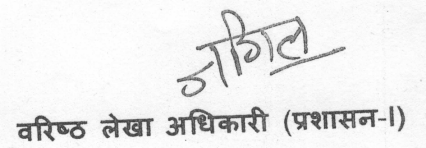 वरिष्ठ लेखा अधिकारी (प्रशासन-I)